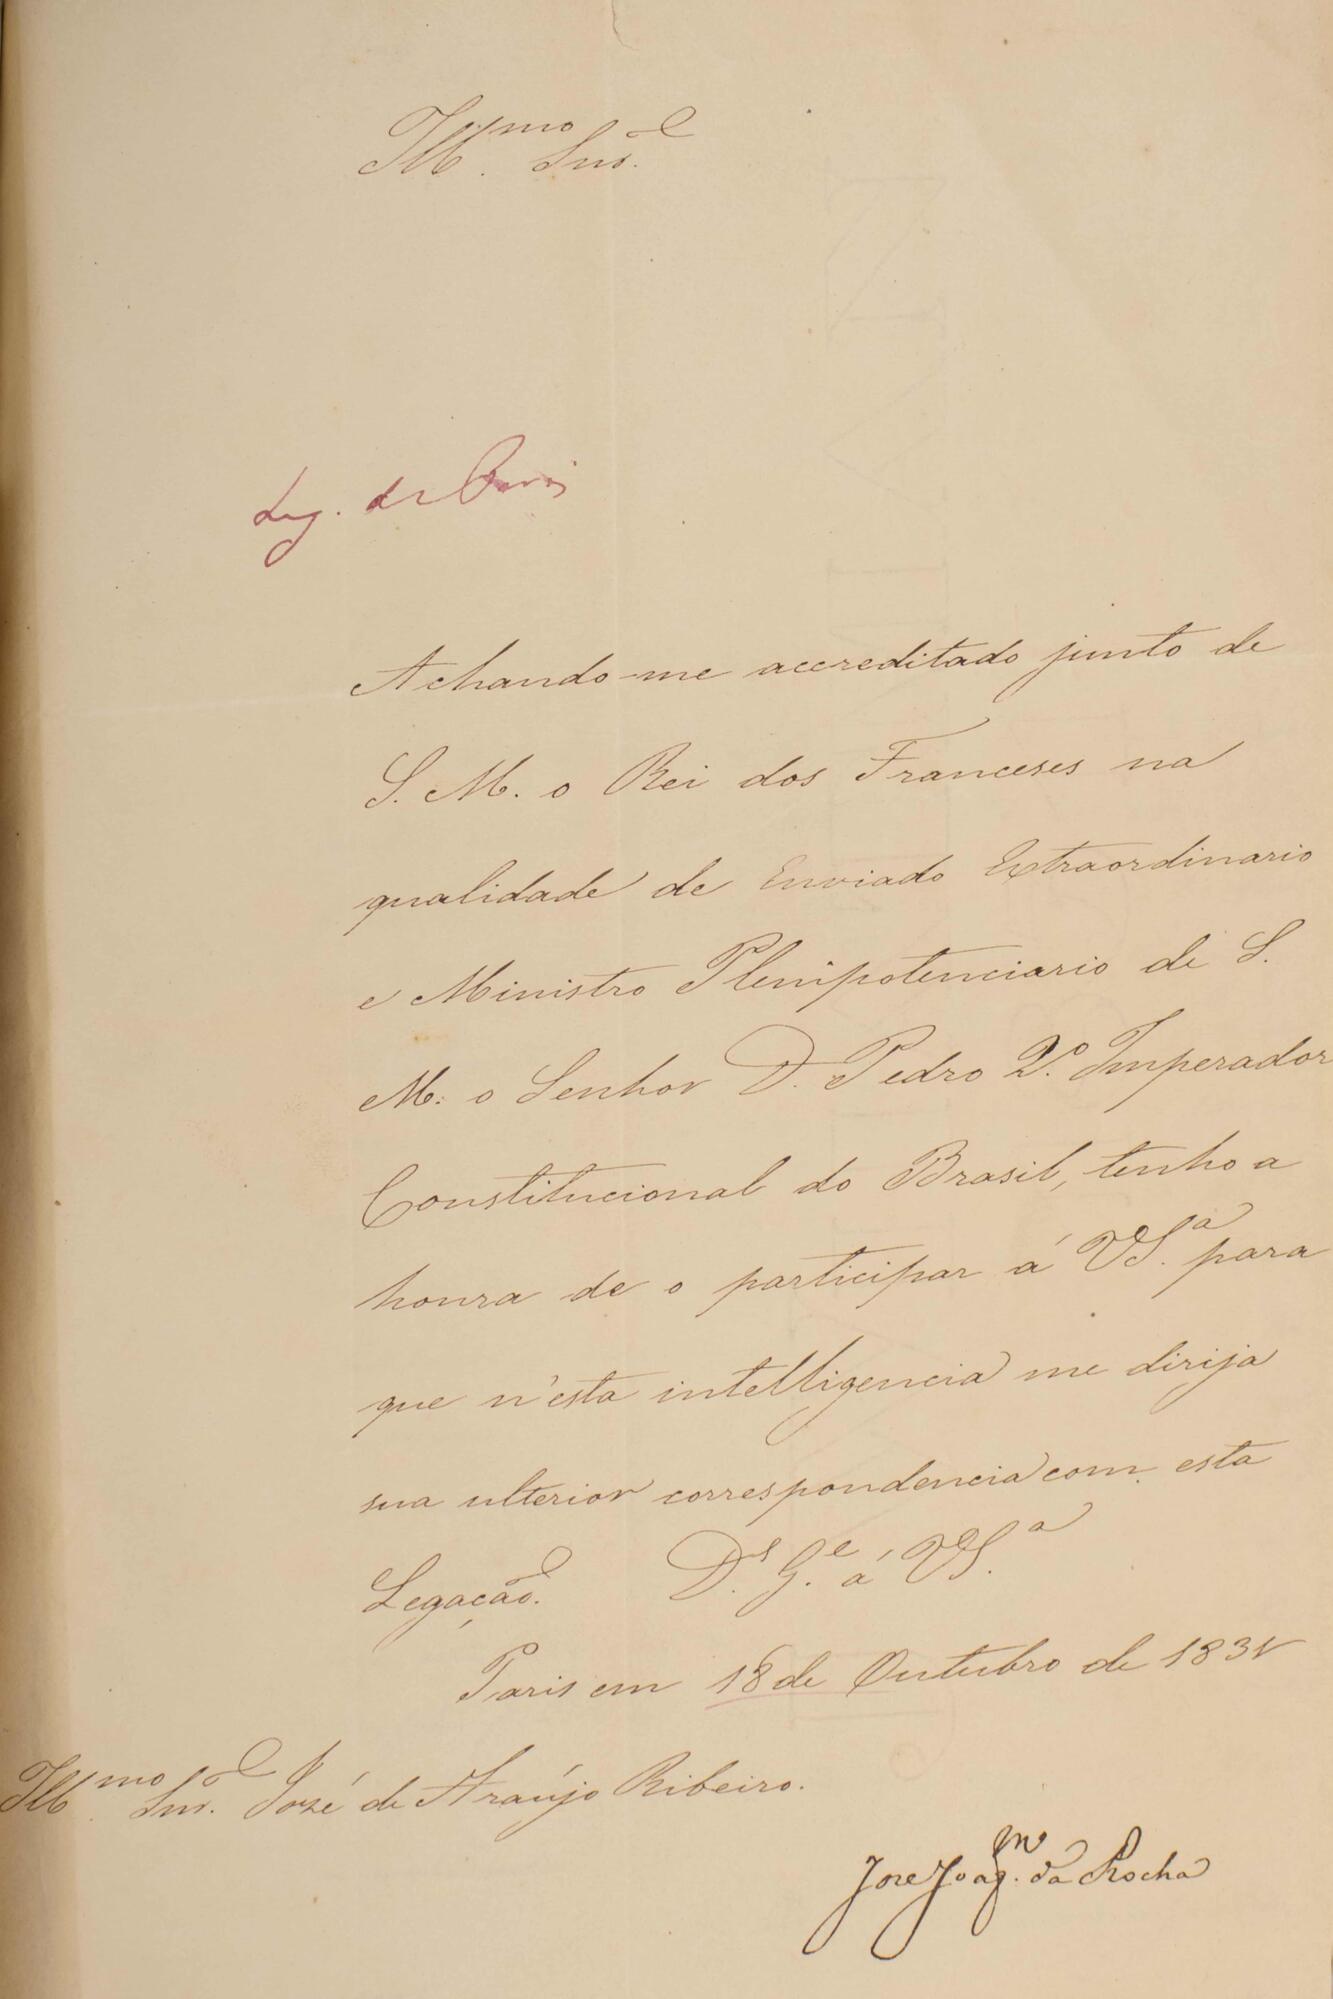 Ill.mo Snr.
Leg. de Paris
Achando-me accreditado junto de
S. M. o Rei dos Franceses na
qualidade de Enviado Extraordinario
e Ministro Plenipotenciario de S.
M. o Senhor D. Pedro 2.º Imperador
Constitucional do Brasil, tenho a
honra de o participar á VS.ª para
que n'esta intelligencia me dirija
sua ulterior correspondencia com esta
Legação. D.s G.e á VS.ª
Paris em 18 de Outubro de 1831
Ill.mo Snr. José de Araújo Ribeiro.
Jose Joaq.m da Rocha